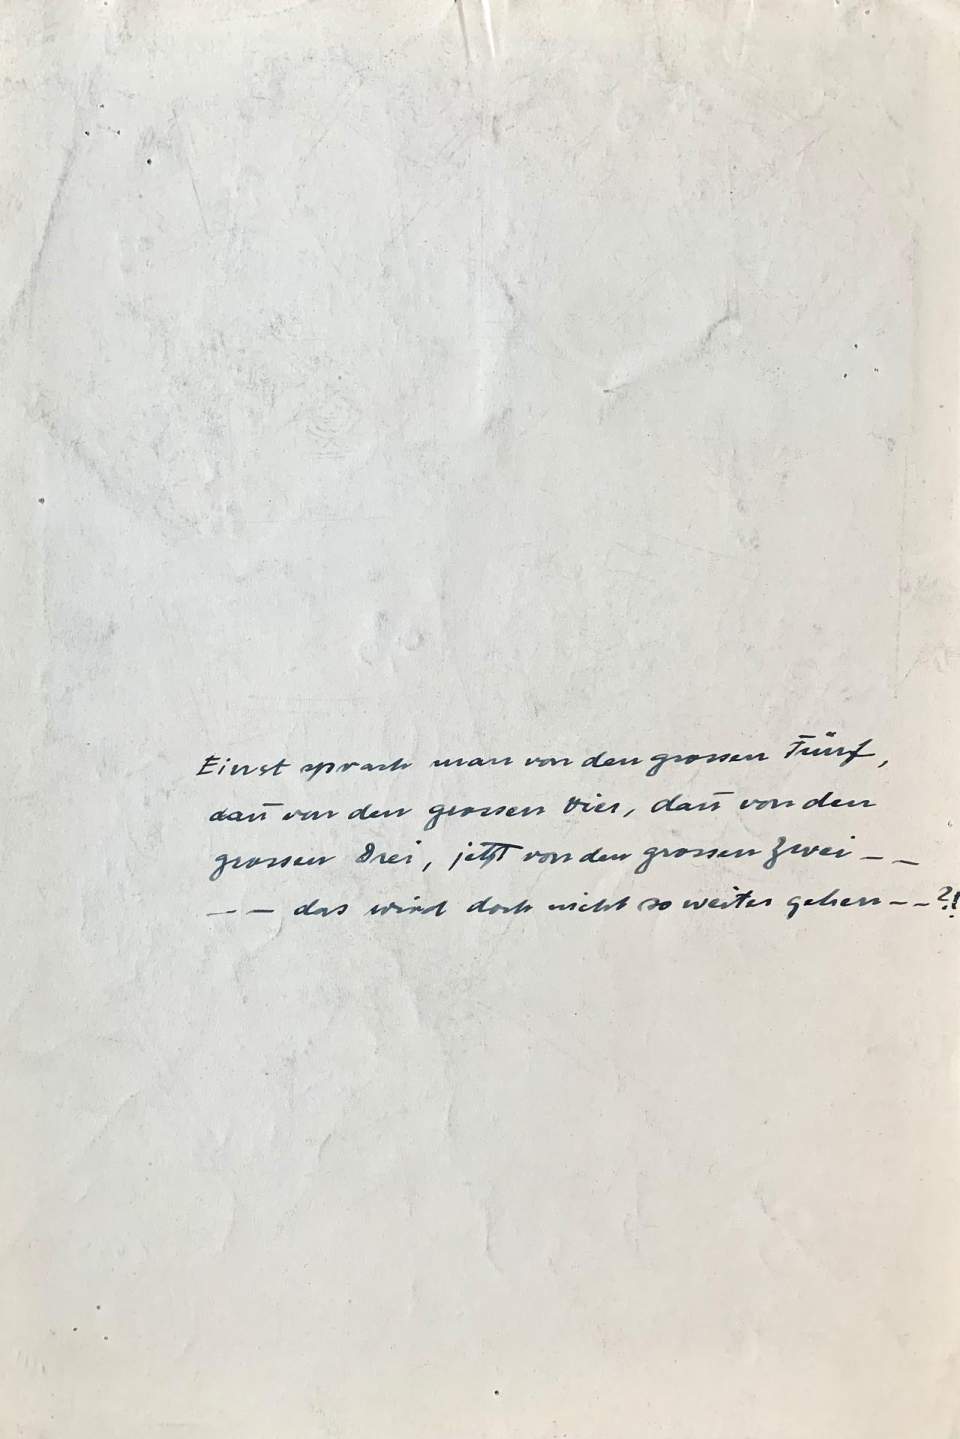 Einst sprach man von den grossen Fünf,
dan̄ von den grossen Vier, dan̄ von den
grossen Drei, jetzt von den grossen Zwei – –
– – das wird doch nicht so weiter gehen – – ?!